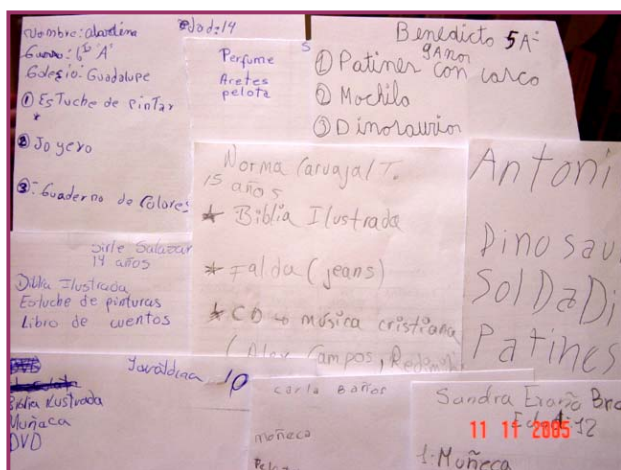 Nombre: 
Edad: 14
Curso: 6º "A"
Colegio: Guadalupe
① Estuche de pintar
*
② Joyero
③: Cuaderno de Colores
5
Perfume
Acetes
pelota
Benedicto 5A-
9 Años
① Patines con casco
② Mochila
③ Dinosaurios
Norma Carvajal T.
15 años
* Biblia Ilustrada
* Falda (jeans)
* CD → música cristiana
(Alex Campos,
Antoni
Dinosau
SolDaDi
Patines
Salazar
14 años
Biblia Ilustrada
Estuche de pinturas
Libro de cuentos
DVD
Biblia Ilustrada
Muñaca
DVD
10
Carla Baños
moñeca
Sandra
Edad: 12
1- Muñeca
11 11 2005